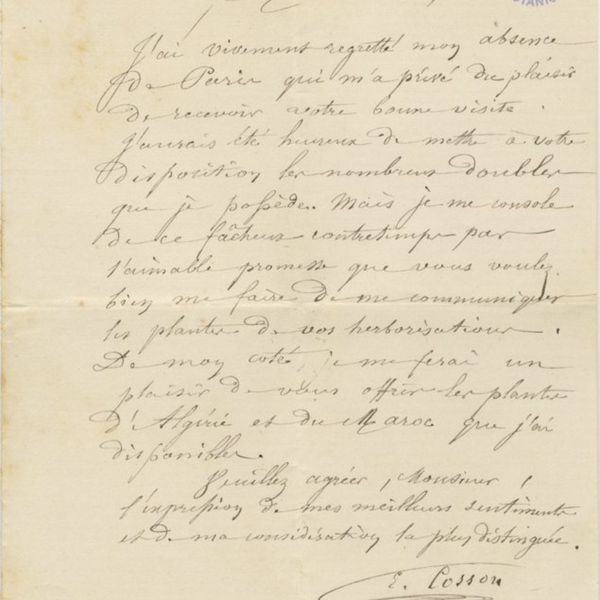 TANIQ
J'ai vivement regretté mon absence
de Paris qui m'a privé du plaisir
de recevoir votre bonne visite.
J'aurais été heureux de mettre à votre
disposition les nombreux doubles
que je possède. Mais je me console
de ce fâcheux contretemps par
l'aimable promesse que vous voulez
bien me faire de me communiquer
les plantes de vos herborisations.
De mon côté, je me ferai un
plaisir de vous offrir les plantes
d'Algérie et du Maroc que j'ai
disponibles.
Veuillez agréer, Monsieur,
l'expression de mes meilleurs sentiments
et de ma considération la plus distinguée.
E. Cosson